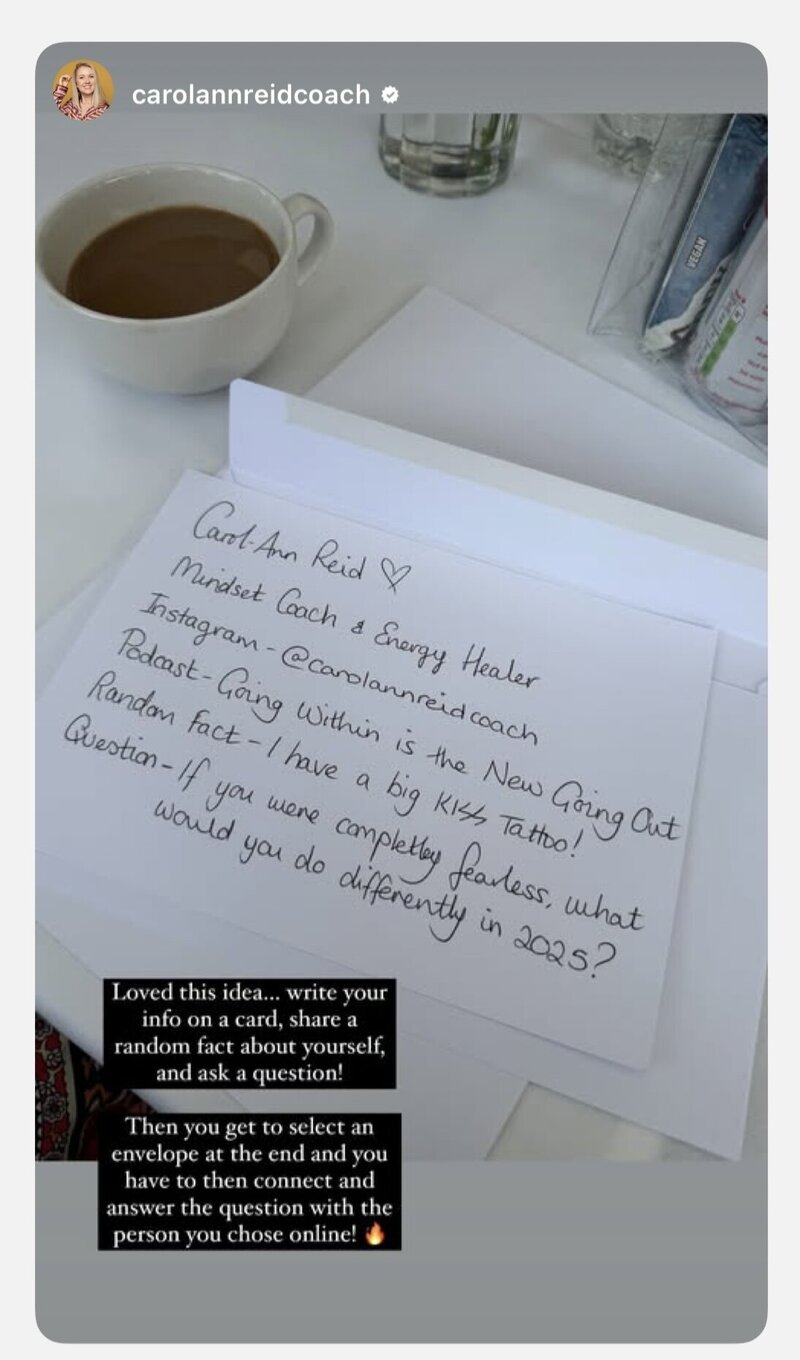 carolannreidcoach
VEGAN
Carol-Ann Reid ♡
Mindset Coach & Energy Healer
Instagram - @carolannreidcoach
Podcast - Going Within is the New Going Out
Random Fact - I have a big KISS Tattoo!
Question - If you were completley fearless, what
would you do differently in 2025?
Loved this idea... write your
info on a card, share a
random fact about yourself,
and ask a question!
Then you get to select an
envelope at the end and you
have to then connect and
answer the question with the
person you chose online! 🔥